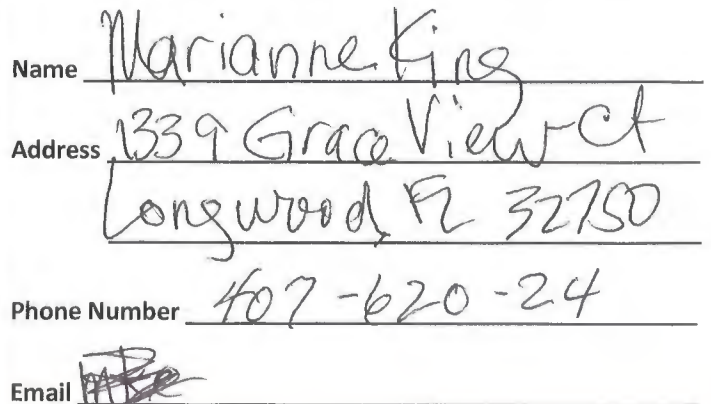 Name Marianne King
Address 1339 Grace View Ct
Longwood, FL 32750
Phone Number 407-620-24
Email